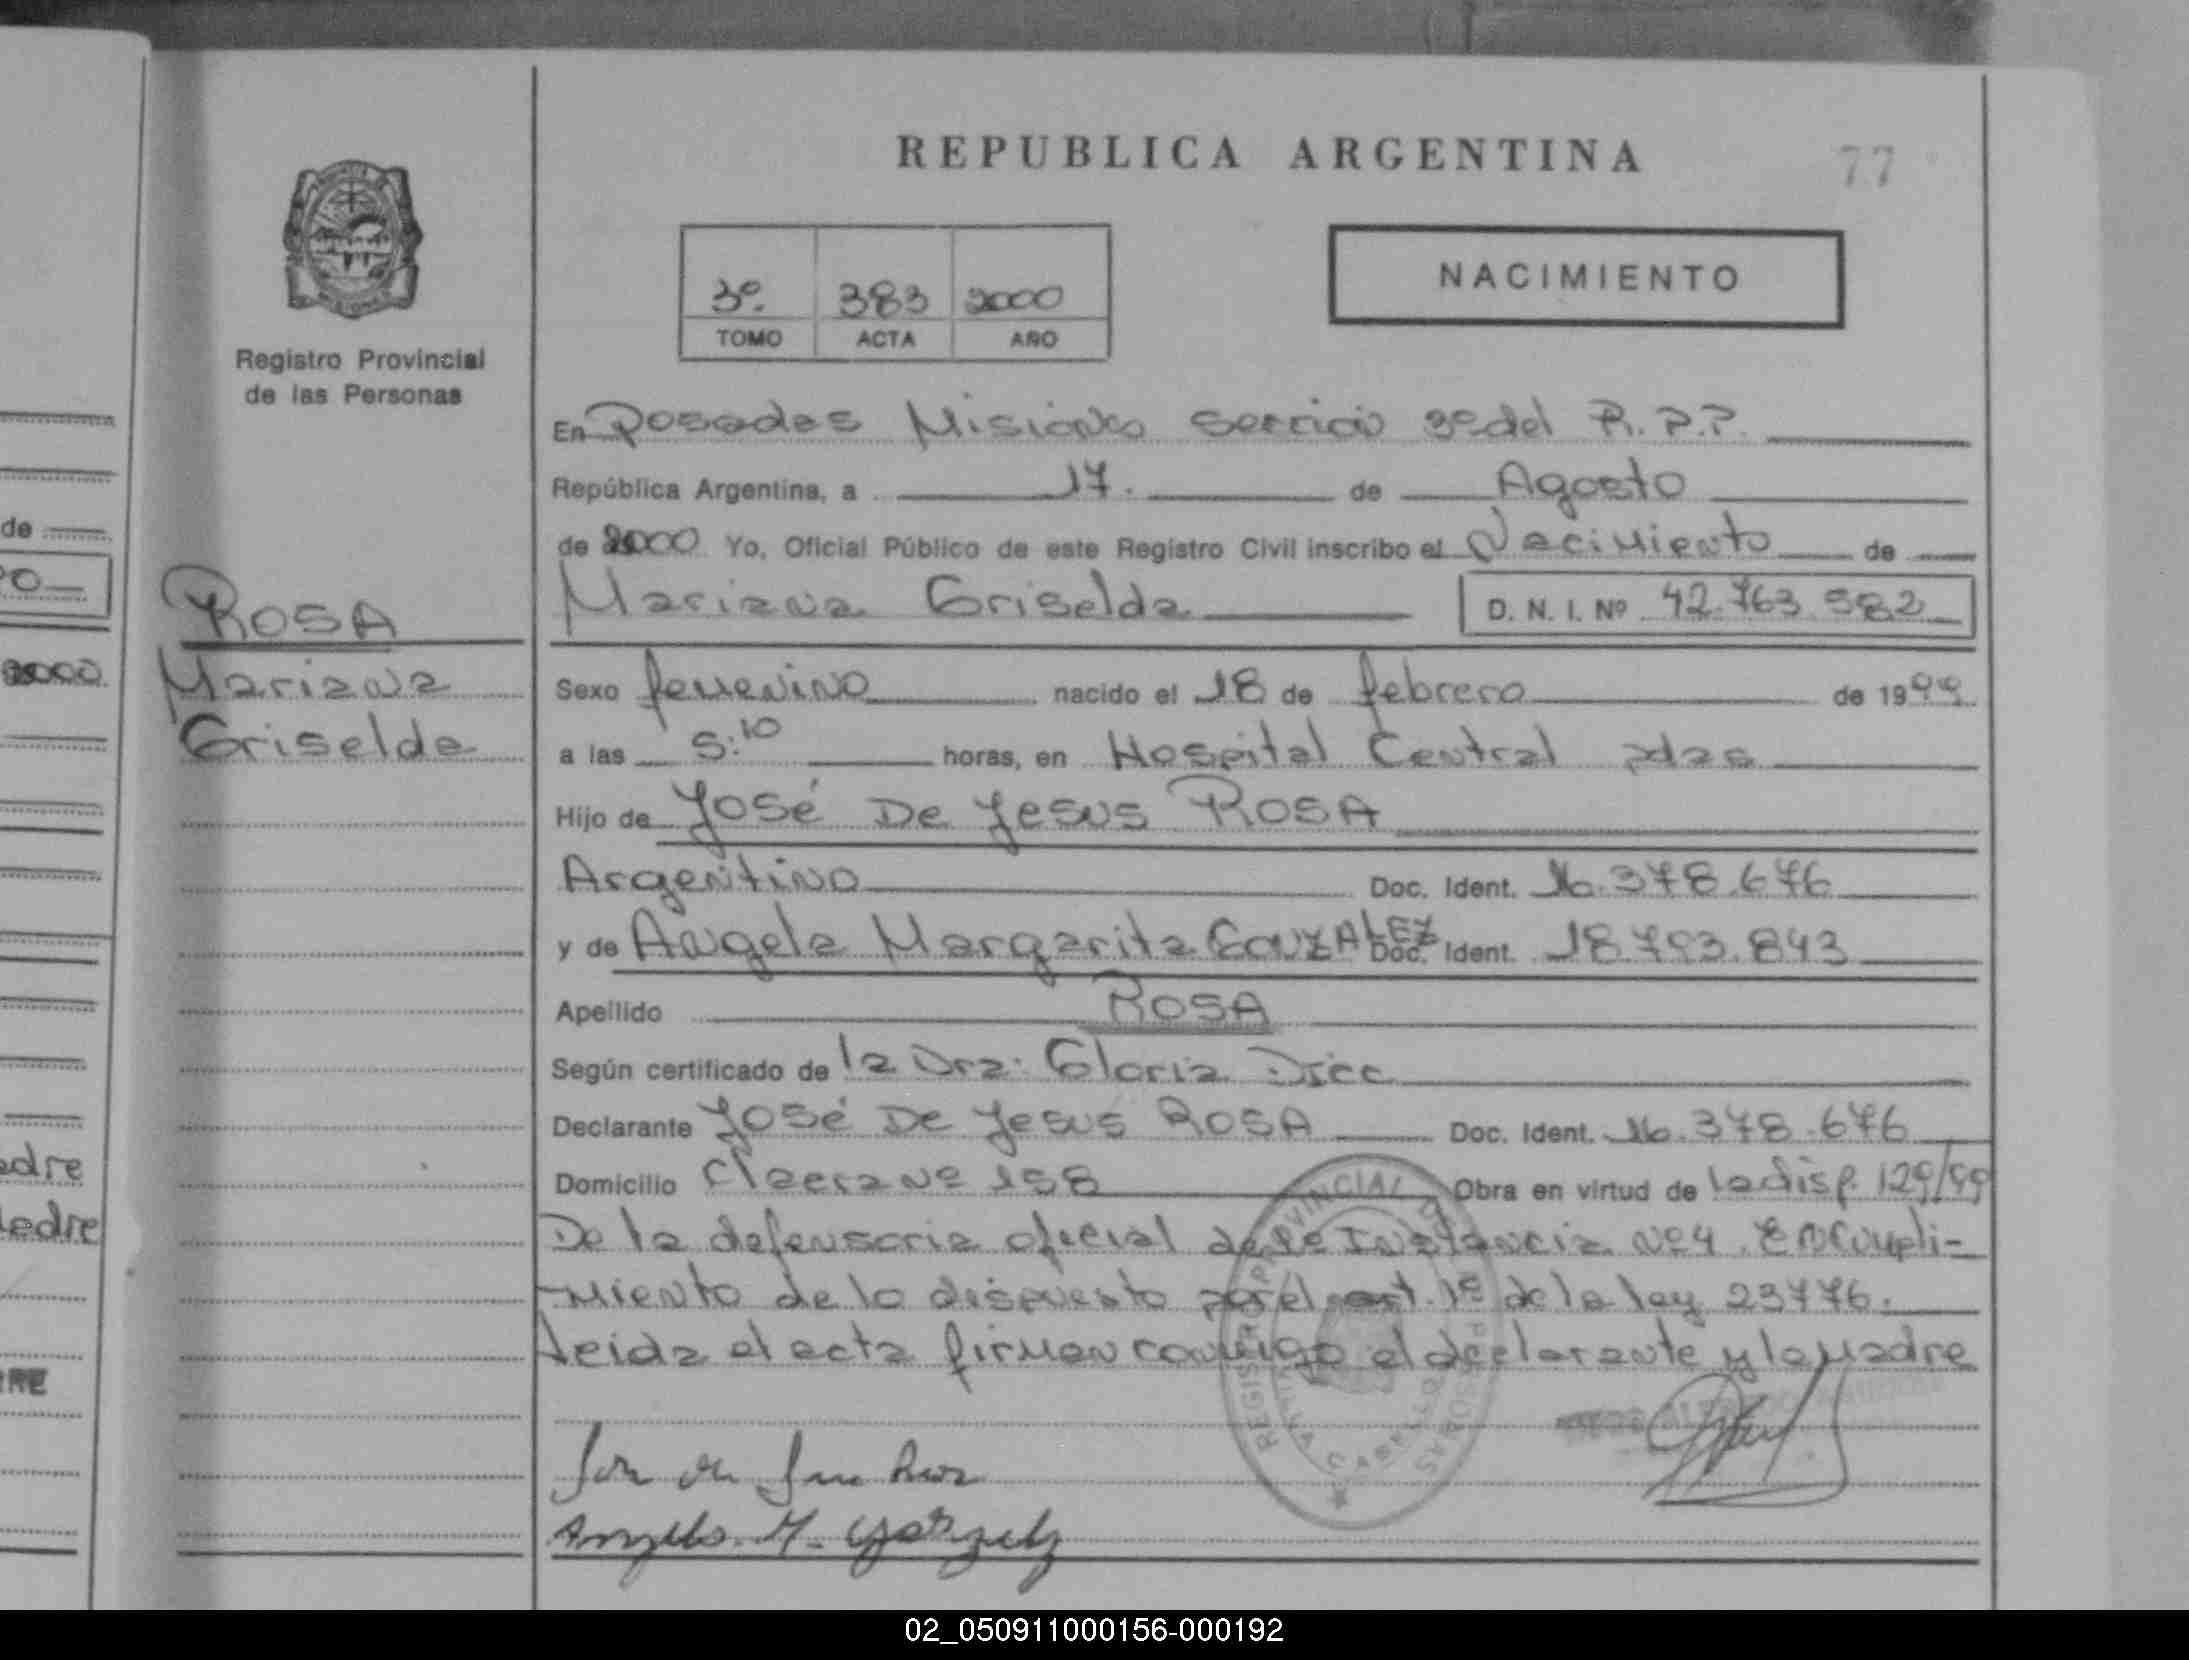 REPUBLICA ARGENTINA
77
NACIMIENTO
3º. 383 2000
TOMO ACTA AÑO
Registro Provincial
de las Personas
En Posadas Misiones Sección 3º del R.P.P.
República Argentina, a 17. de Agosto
de 2000 Yo, Oficial Público de este Registro Civil inscribo el Nacimiento de
Mariana Griselda D. N. I. Nº 42.763.582
ROSA
Mariana
Griselda
Sexo femenino nacido el 18 de febrero de 1999
a las 5:10 horas, en Hospital Central pdas
Hijo de José De Jesus ROSA
Argentino Doc. Ident. 16.378.676
y de Angela Margarita GONZALEZ Doc. Ident. 18.793.843
Apellido ROSA
Según certificado de la Dra. Gloria
Declarante José De Jesus ROSA Doc. Ident. 16.378.676
Domicilio Nº 158 Obra en virtud de la disp. 129/99
De la defensoria oficial de 1º Instancia Nº4. En Cumpli-
-miento de lo dispuesto por el art. 1º de la ley 23776.
Leida el acta firman conmigo el declarante y la madre
REGISTRO PROVINCIAL DE LAS PERSONAS
Angela M. Gonzalez
de
2000
adre
adre
RE
02_050911000156-000192